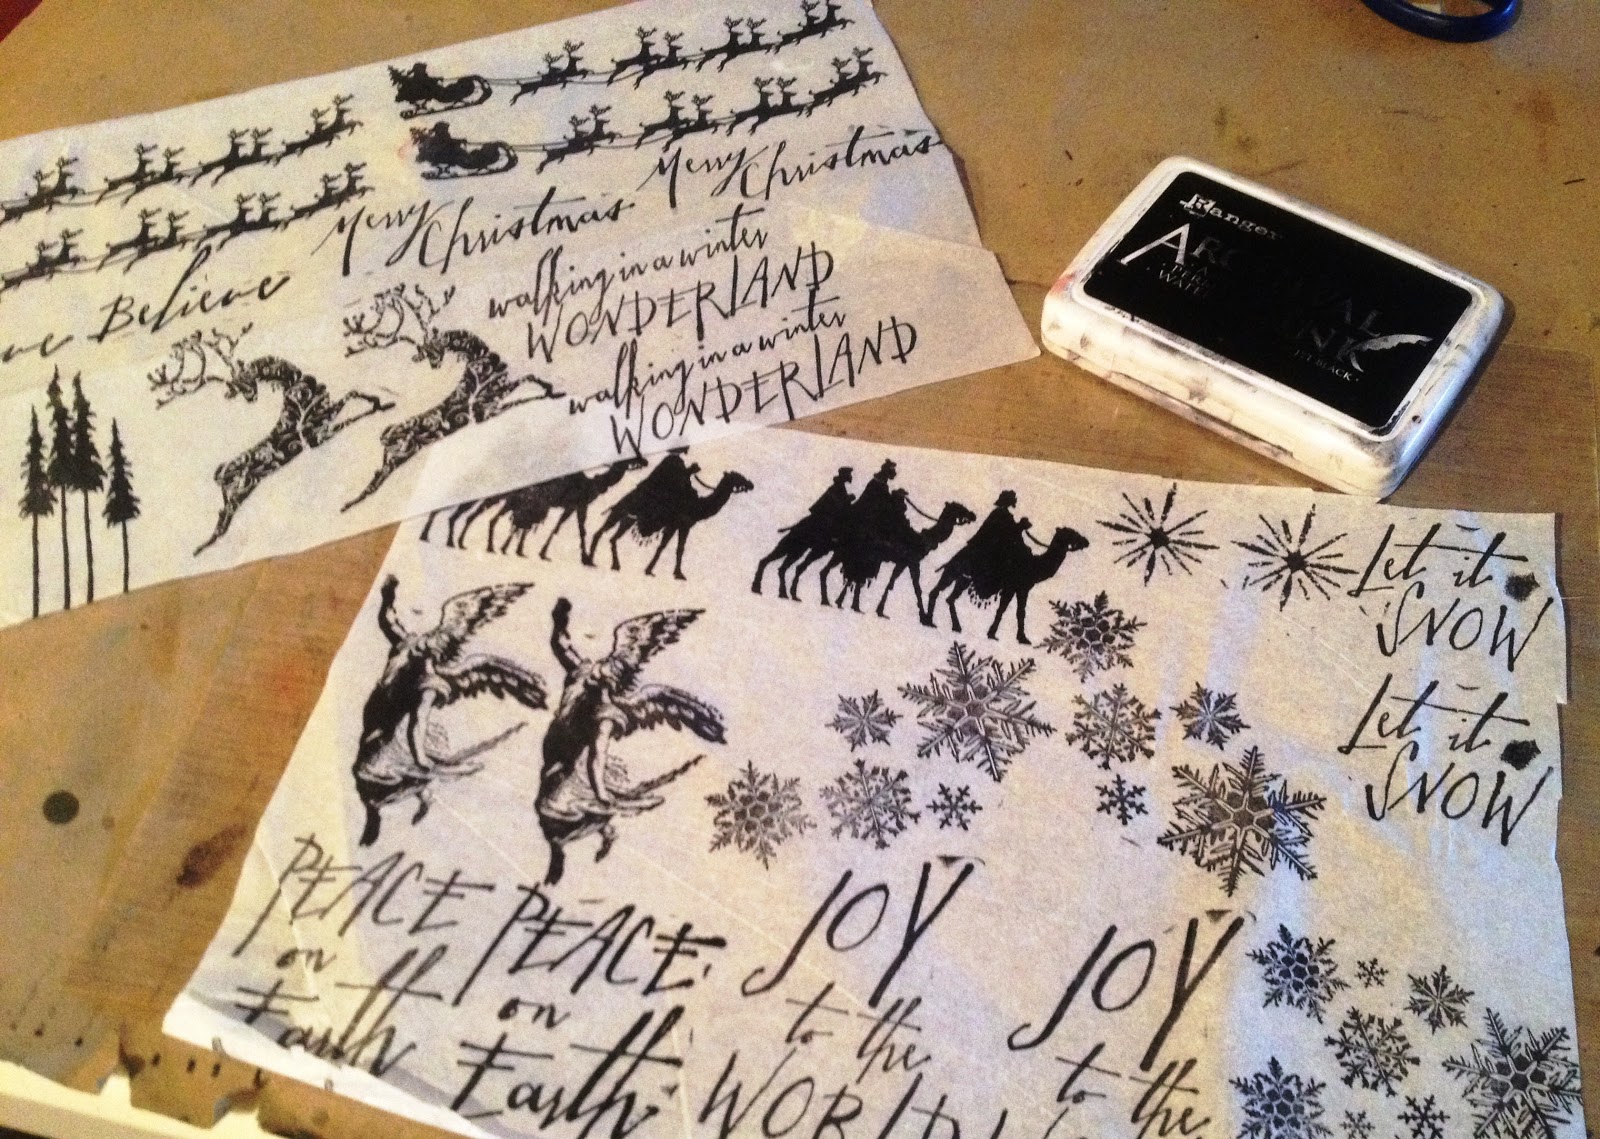 Merry Christmas
Merry Christmas
Believe
walking in a winter
WONDERLAND
walking in a winter
WONDERLAND
Ranger
INK
JET BLACK
Let it
SNOW
Let it
SNOW
PEACE
on
Earth
PEACE
on
Earth
JOY
to the
WORLD
JOY
to the